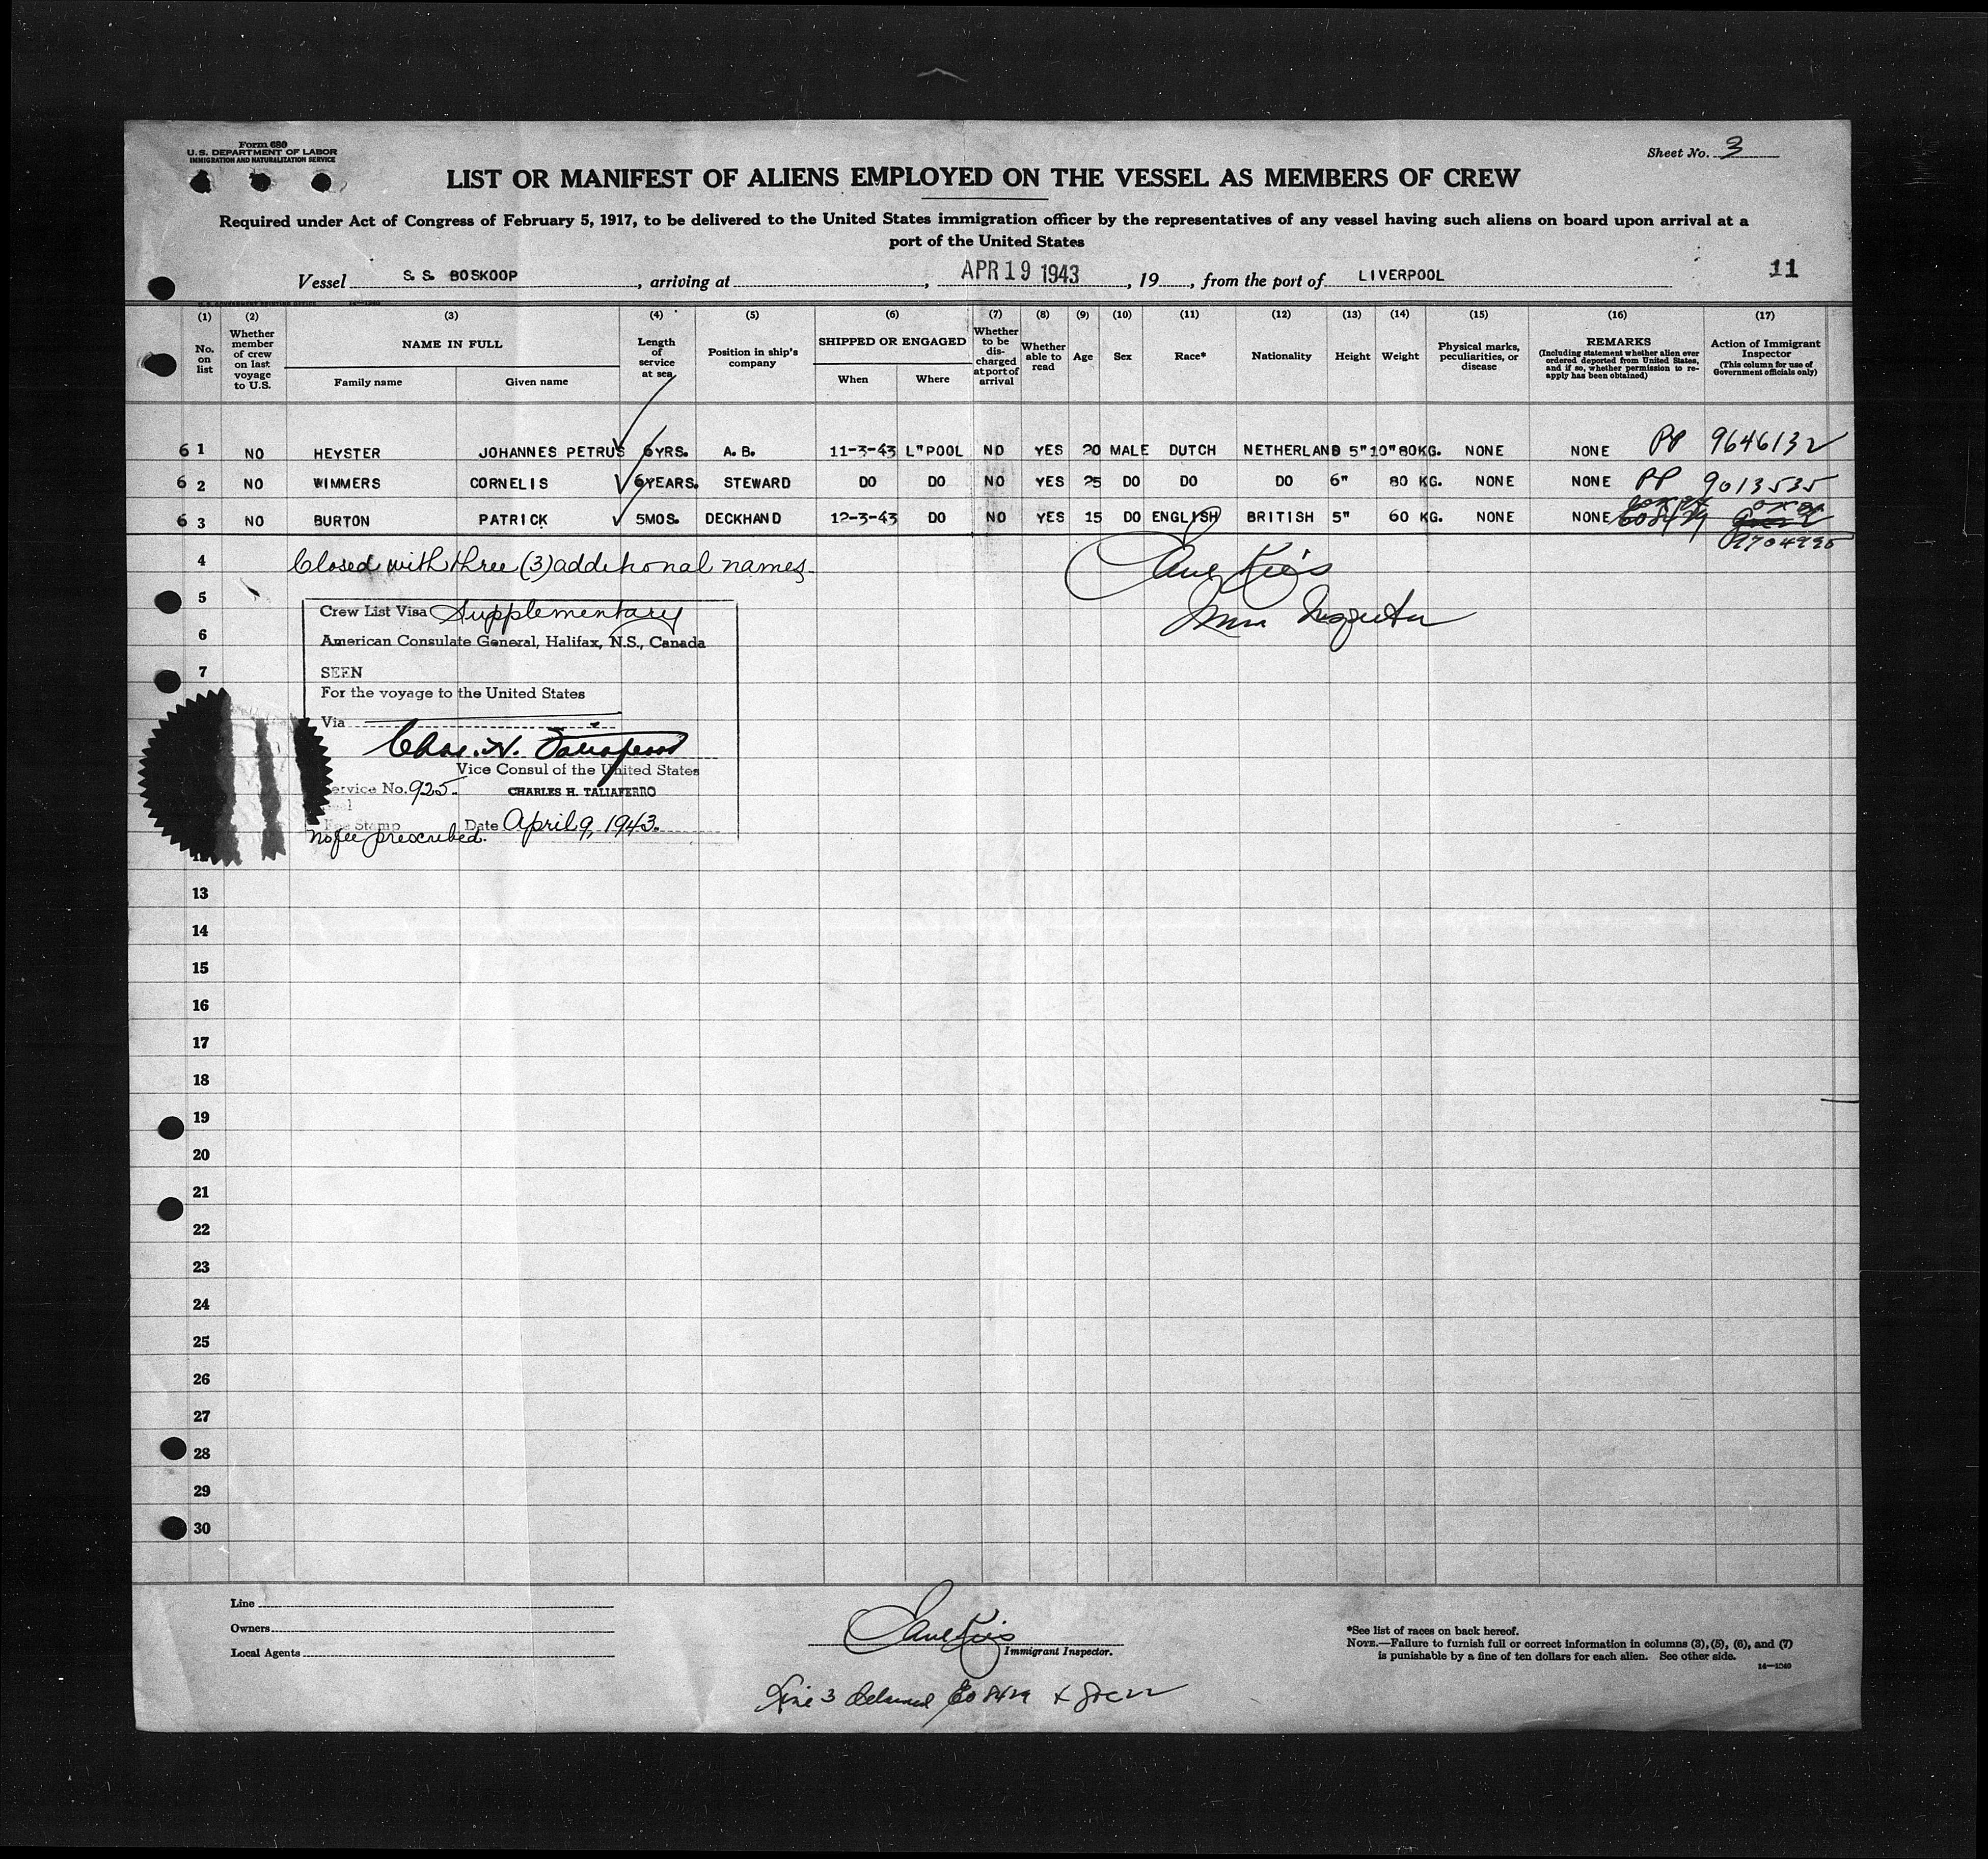 Form 680
U.S. DEPARTMENT OF LABOR
IMMIGRATION AND NATURALIZATION SERVICE
Sheet No. 3
LIST OR MANIFEST OF ALIENS EMPLOYED ON THE VESSEL AS MEMBERS OF CREW
Required under Act of Congress of February 5, 1917, to be delivered to the United States immigration officer by the representatives of any vessel having such aliens on board upon arrival at a
port of the United States
Vessel S.S. BOSKOOP, arriving at , APR 19 1943, 19 , from the port of LIVERPOOL 11
(1) No. on list
(2) Whether member of crew on last voyage to U.S.
(3) NAME IN FULL Family name Given name
(4) Length of service at sea
(5) Position in ship's company
(6) SHIPPED OR ENGAGED When Where
(7) Whether to be discharged at port of arrival
(8) Whether able to read
(9) Age
(10) Sex
(11) Race*
(12) Nationality
(13) Height
(14) Weight
(15) Physical marks, peculiarities, or disease
(16) REMARKS (Including statement whether alien ever ordered deported from United States, and if so, whether permission to reapply has been obtained)
(17) Action of Immigrant Inspector (This column for use of Government officials only)
6 1 NO HEYSTER JOHANNES PETRUS 6YRS. A.B. 11-3-43 L"POOL NO YES 20 MALE DUTCH NETHERLAND 5"10" 80KG. NONE NONE PP 9646132
6 2 NO WIMMERS CORNELIS 6YEARS. STEWARD DO DO NO YES 25 DO DO DO 6" 80 KG. NONE NONE PP 9013535
6 3 NO BURTON PATRICK 5MOS. DECKHAND 12-3-43 DO NO YES 15 DO ENGLISH BRITISH 5" 60 KG. NONE NONE
9704995
4 Closed with three (3) additional names.
5
Crew List Visa Supplementary
6
American Consulate General, Halifax, N.S., Canada
7
SEEN
For the voyage to the United States
Via
Chas. H. Taliaferro
Vice Consul of the United States
Service No. 925.
CHARLES H. TALIAFERRO
Fee Stamp Date April 9, 1943.
No fee prescribed.
13
14
15
16
17
18
19
20
21
22
23
24
25
26
27
28
29
30
Line
Owners
Local Agents
Immigrant Inspector.
*See list of races on back hereof.
NOTE.—Failure to furnish full or correct information in columns (3), (5), (6), and (7)
is punishable by a fine of ten dollars for each alien. See other side.
14—1240
Line 3 detained EO 8429 &